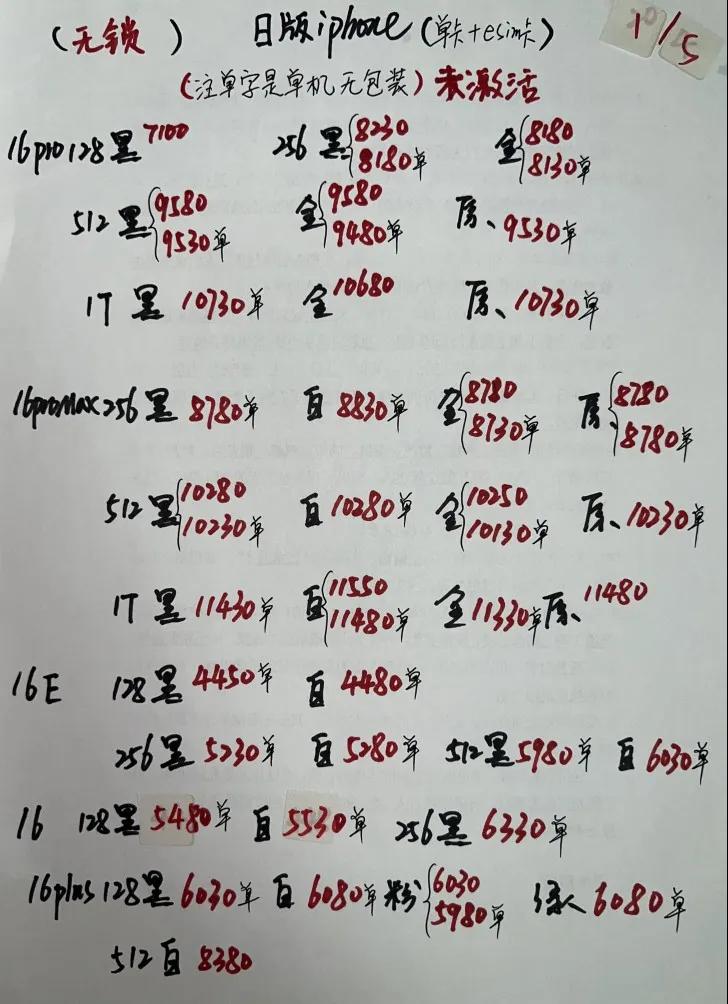 (无锁) 日版iphone(单卡+esim卡) 1/5
(注单字是单机无包装)未激活
16pro128黑7100 256黑{8230 8180单 金{8180 8130单
512黑{9580 9530单 金{9580 9480单 原、9530单
1T黑10730单 金10680 原、10730单
16promax256黑8780单 白8830单 金{8780 8730单 原、{8780 8780单
512黑{10280 10230单 白10280单 金{10250 10130单 原、10230单
1T黑11430单 白{11550 11480单 金11330单 原、11480
16E 128黑4450单 白4480单
256黑5230单 白5280单 512黑5980单 白6030单
16 128黑5480单 白5530单 256黑6330单
16plus128黑6030单 白6080单 粉{6030 5980单 绿6080单
512白8380